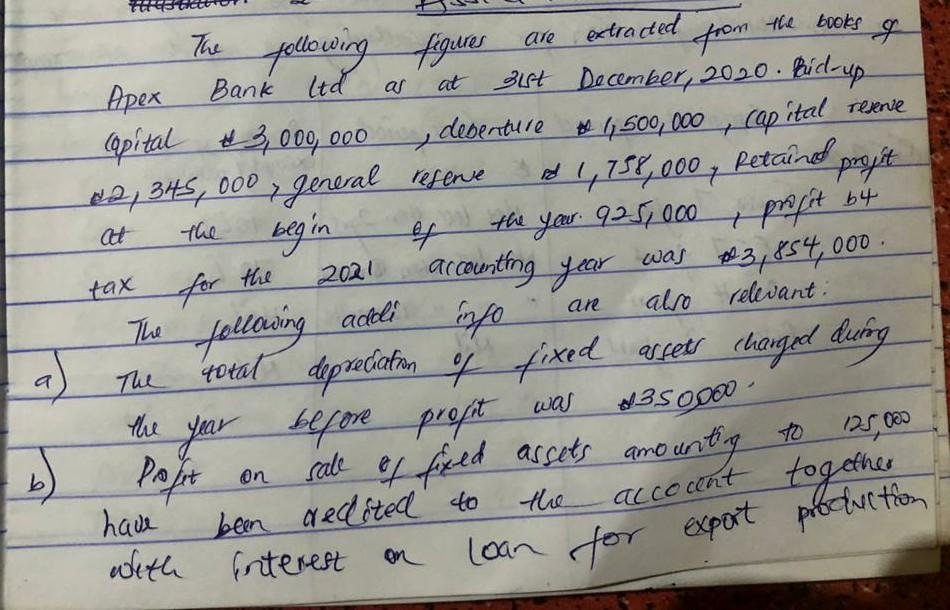 The following figures are extracted from the books of
Apex Bank ltd as at 31st December, 2020. Paid-up
Capital ₦ 3,000,000 , debenture ₦ 1,500,000 , capital reserve
₦2,345,000 , general reserve ₦ 1,758,000 , Retained profit
at the begin of the year. 925,000 , profit b4
tax for the 2021 accounting year was ₦3,854,000.
The following addi info are also relevant:
a) The total depreciation of fixed assets charged during
the year before profit was ₦350,000.
b) Profit on sale of fixed assets amounting to 125,000
have been credited to the account together
with interest on loan for export production